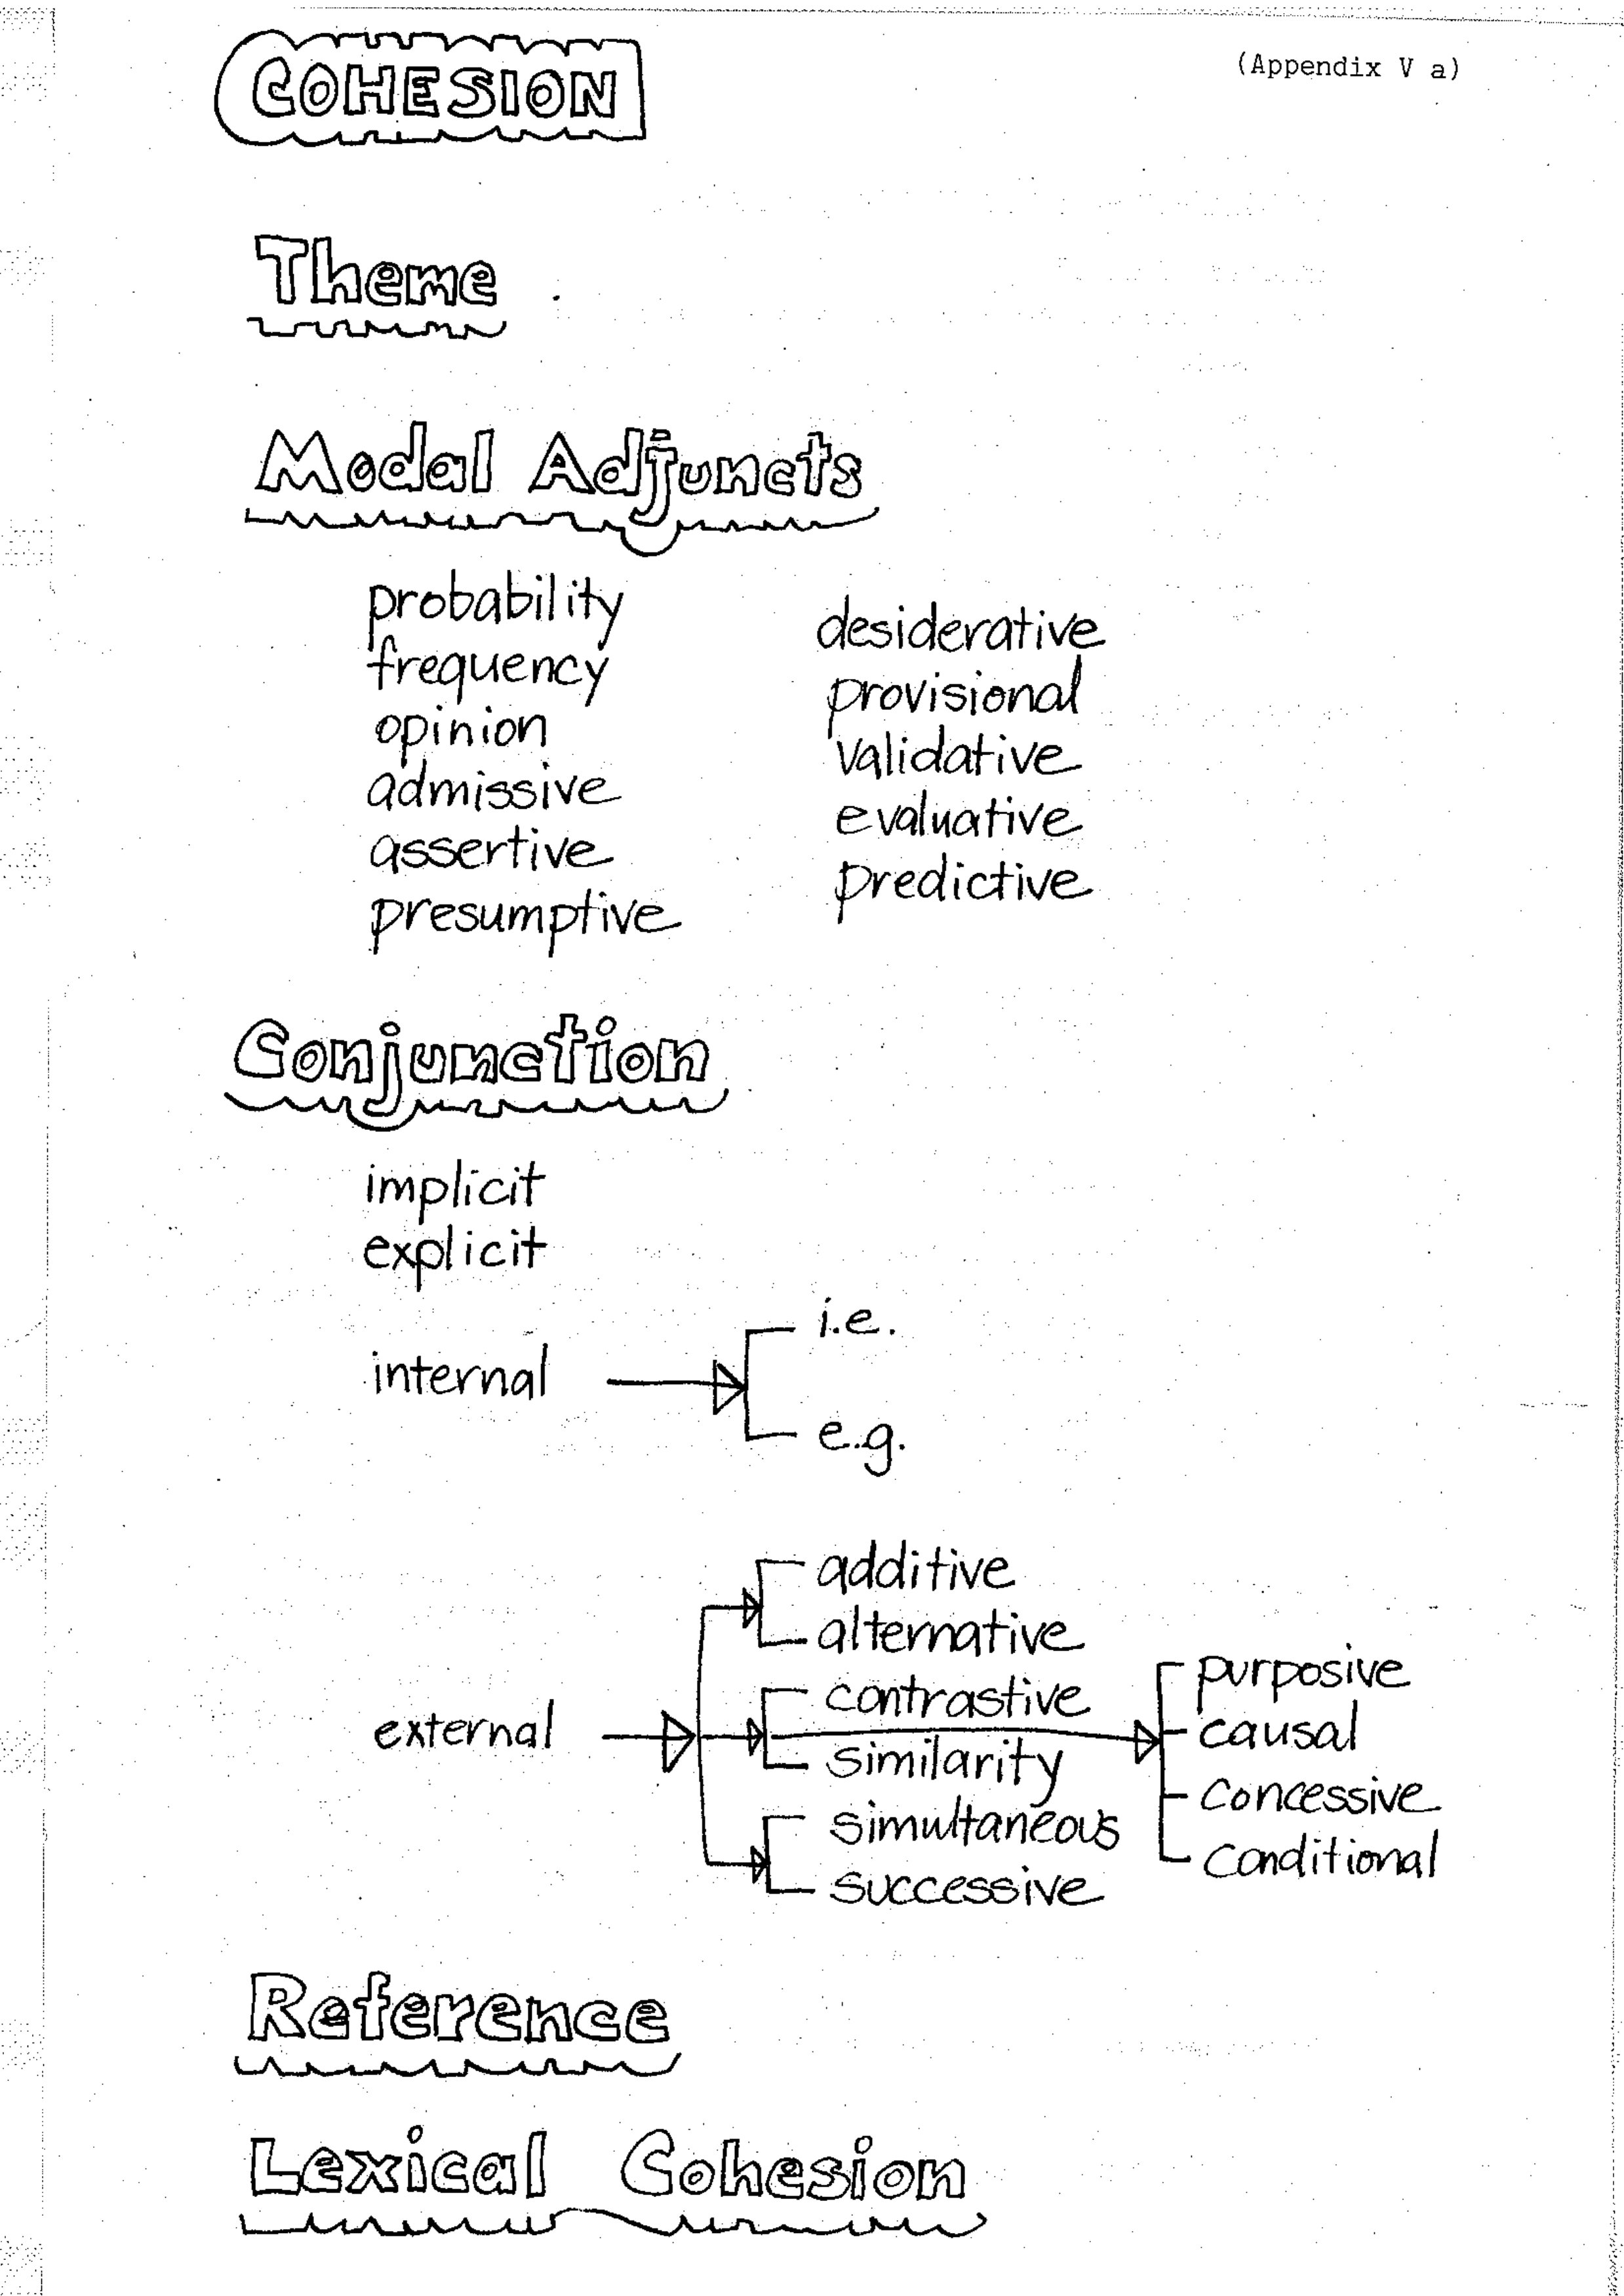 (Appendix V a)
COHESION
Theme
Modal Adjuncts
probability
frequency
opinion
admissive
assertive
presumptive
desiderative
provisional
validative
evaluative
predictive
Conjunction
implicit
explicit
internal
i.e.
e.g.
external
additive
alternative
contrastive
similarity
simultaneous
successive
purposive
causal
concessive
conditional
Reference
Lexical Cohesion